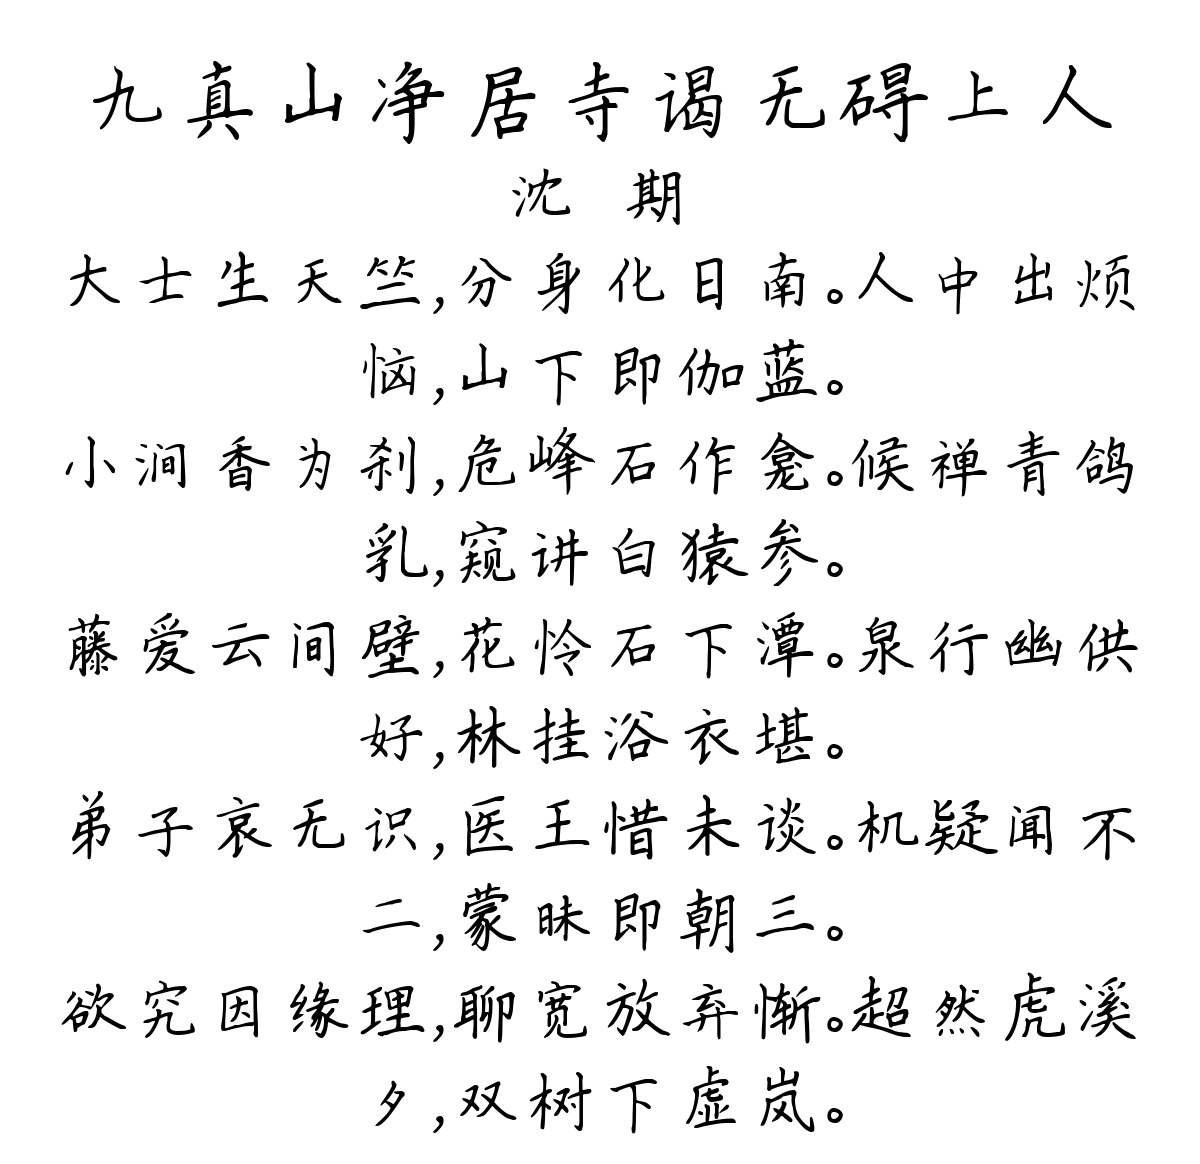 九真山净居寺谒无碍上人
沈 期
大士生天竺,分身化日南。人中出烦
恼,山下即伽蓝。
小涧香为刹,危峰石作龛。候禅青鸽
乳,窥讲白猿参。
藤爱云间壁,花怜石下潭。泉行幽供
好,林挂浴衣堪。
弟子哀无识,医王惜未谈。机疑闻不
二,蒙昧即朝三。
欲究因缘理,聊宽放弃惭。超然虎溪
夕,双树下虚岚。